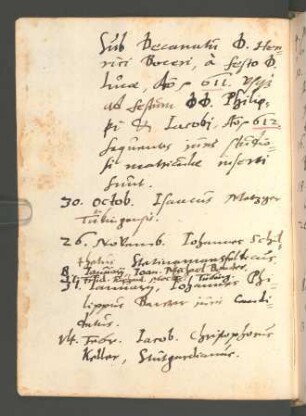 Sub Decanatu D. Hen-
rici Boceri, à festo D.
Lucæ, Aõ 611. Usq
ad festum DD. Philip-
pi & Iacobi, Aõ 612.
sequentes iuris studio-
si matriculæ inserti
sunt.
30. octob. Isaacus Metzger
Tubingensis.
26. Novemb. Iohannes Schul-
thetus
8. Ianuarij, Ioan. Michael
Tubing.
31. Ianuarij, Iohannes Phi-
lippus iuris Candi-
datus.
14. Febr. Iacob. Christophorus
Keller, Stutgardianus.